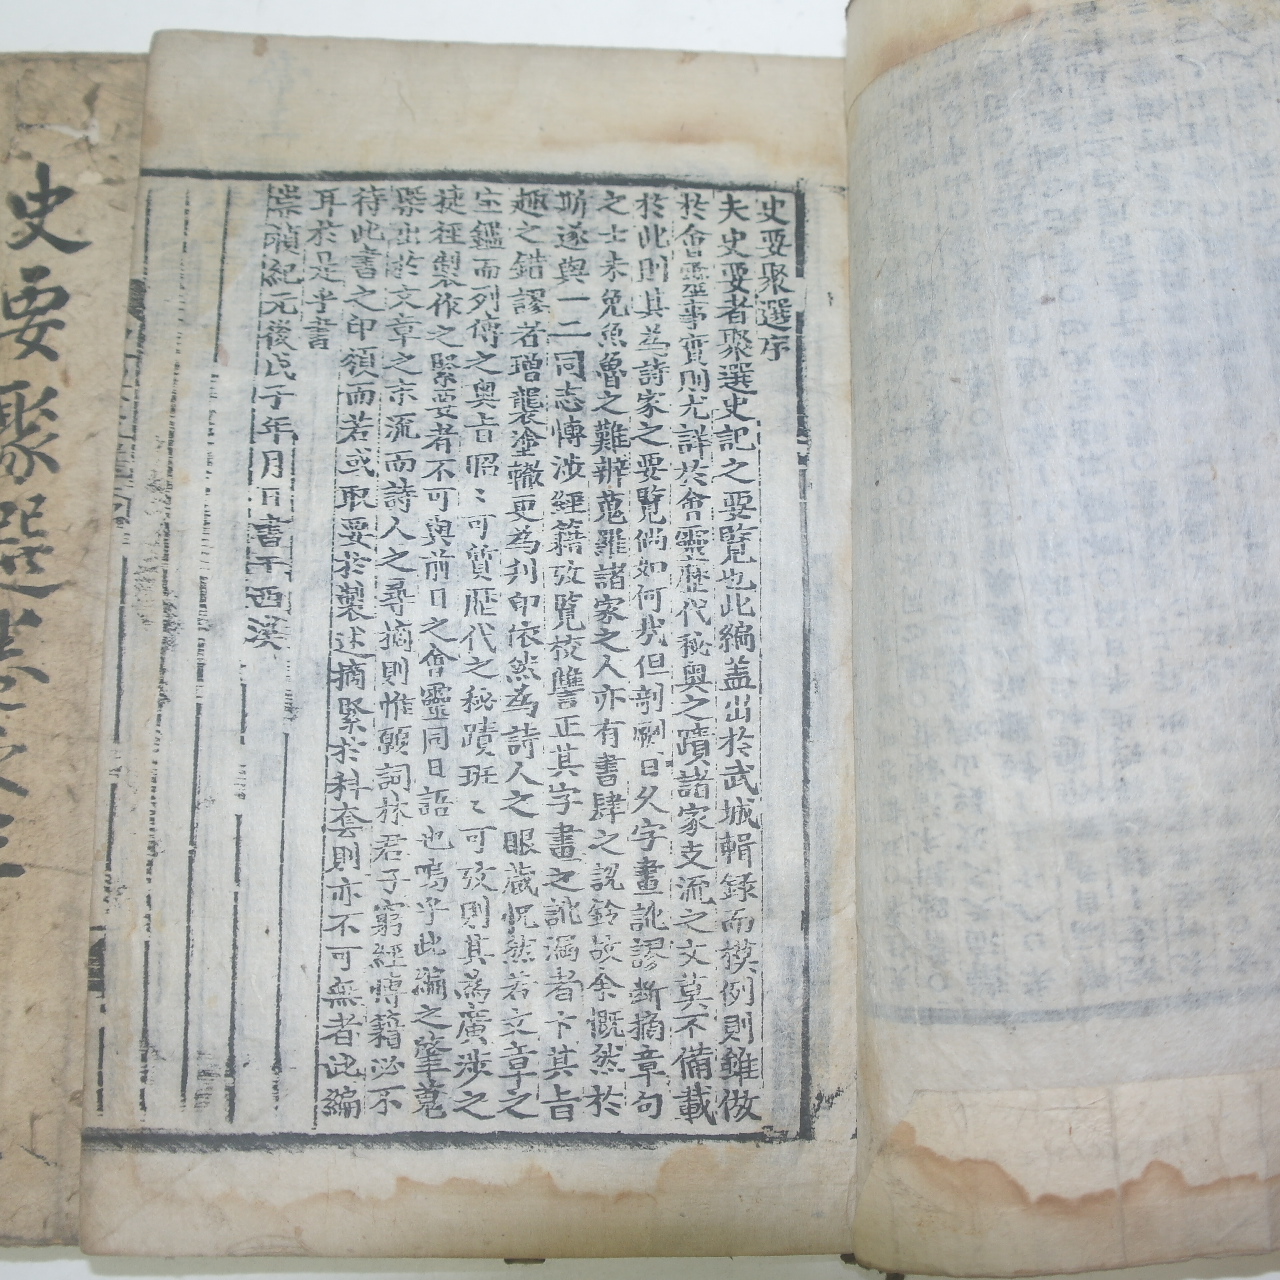 史要聚選序
夫史要者聚選史記之要覽也此編盖出於武城輯録而模例則雖倣
於會靈事實則尤詳於會靈歷代秘奥之蹟諸家支流之文莫不備載
於此則其為詩家之要覽倘如何哉但剞劂日久字畫訛謬断摘章句
之士未免魚魯之難辦蒐羅諸家之人亦有書肆之説鈴故余慨然於
斯遂與一二同志愽涉經籍攷覧校讐正其字畫之訛漏者卞其旨
趣之錯謬若璔襲塗轍更為刋印依然為詩人之眼藏怳然若文章之
宝鑑而列傳之奥旨昭〻可質歷代之秘蹟班〻可攷則其為廣涉之
捷徑製作之緊要者不可與前日之會靈同日語也嗚乎此編之肇蒐
槩出於文章之京流而詩人之尋摘則惟願詞林君子窮經愽籍必不
待此書之印頒而若或取要於製述摘緊於科套則亦不可無者此編
耳於是乎書
崇禎紀元後戊子年月日書于西溪
史要聚選卷之三